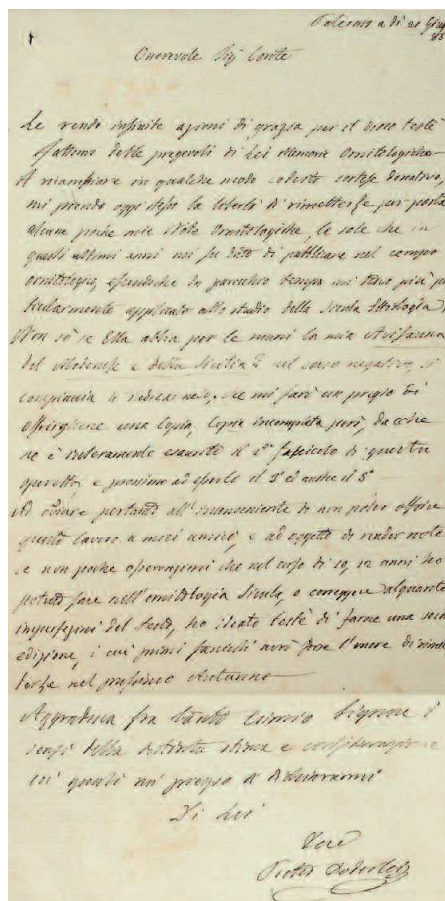 Palermo a dì 21
Onorevole Sig Conte
Le rendo infinite azioni di grazia per il dono testè
fattomi delle pregevoli di Lei Memorie Ornitologiche
A ricambiare in qualche modo codesto cortese donativo,
mi prendo oggi stesso la libertà di rimetterle per posta
alcune poche mie Note Ornitologiche, le sole che in
questi ultimi anni mi fu dato di pubblicare nel campo
ornitologico, essendoche da parecchio tempo mi sono più
applicato allo studio della Sicula Ittiologia
Non sò se Ella abbia per le mani la mia Avifauna
del Modenese e della Sicilia nel caso negativo, si
compiaccia che mi farò un pregio di
offrirgliene una Copia, Copia incompleta però, dacche
ne è interamente esaurito il 1º fascicolo di questa
operetta, e prossimo ad esserlo il 3º ed anche il 5º
Ad ovviare pertanto all'inconveniente di non poter offrire
questo lavoro a miei amici, e ad oggetto di render note
le non poche osservazioni che nel corso di 10, 12 anni ho
potuto fare nell'ornitologia Sicula, e correggere alquante
imperfezioni del testo, ho ideato testè di farne una
edizione, i cui primi fascicoli avrò forse l'onore di
nel prossimo Autunno
Aggradisca fra tanto Esimio Signore i
sensi della distinta stima e considerazione
coi quali mi pregio di dichiararmi
Di Lei
Pietro Doderlein